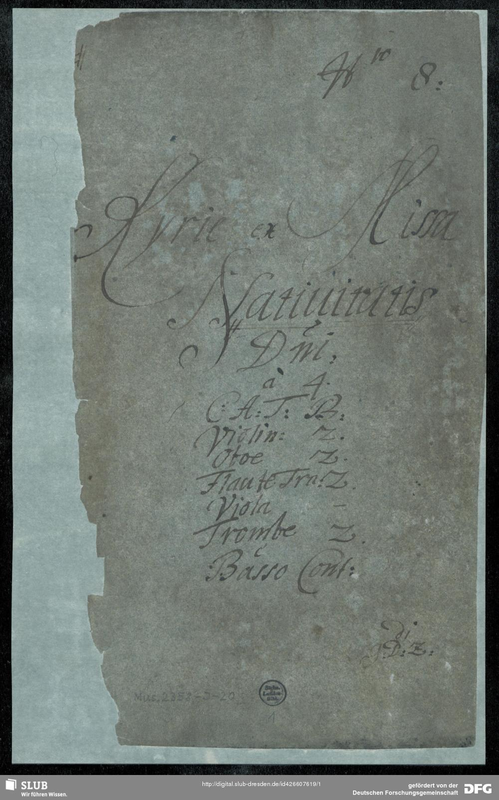 No 8:
Kyrie ex Missa
Nativitatis
Dni,
à 4.
C: A: T: B:
Violin: 2.
Oboe 2.
Flaute Tra: 2.
Viola –
Trombe 2.
e
Basso Cont:
di
J:D:Z:
SLUB
Wir führen Wissen.
http://digital.slub-dresden.de/id426607619/1
gefördert von der
Deutschen Forschungsgemeinschaft
DFG